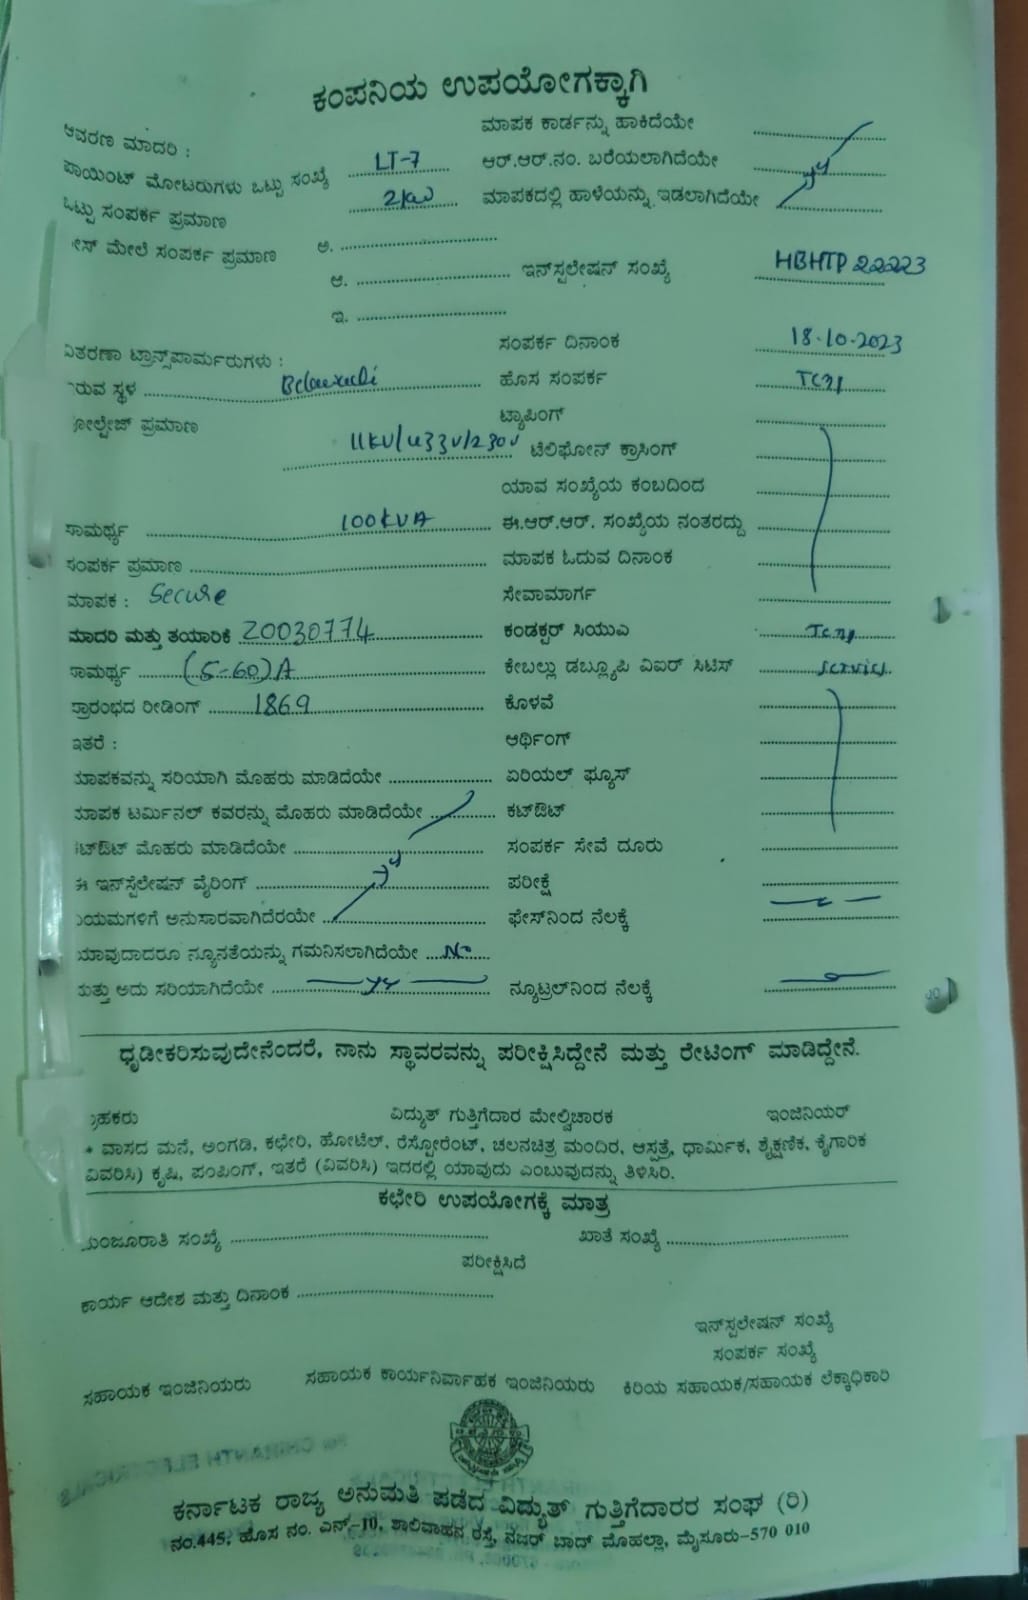 ಕಂಪನಿಯ ಉಪಯೋಗಕ್ಕಾಗಿ
ಆವರಣ ಮಾದರಿ :
ಮಾಪಕ ಕಾರ್ಡನ್ನು ಹಾಕಿದೆಯೇ
ಪಾಯಿಂಟ್ ಮೋಟರುಗಳು ಒಟ್ಟು ಸಂಖ್ಯೆ LT-7 ಆರ್.ಆರ್.ನಂ. ಬರೆಯಲಾಗಿದೆಯೇ
ಒಟ್ಟು ಸಂಪರ್ಕ ಪ್ರಮಾಣ 2kw ಮಾಪಕದಲ್ಲಿ ಹಾಳೆಯನ್ನು ಇಡಲಾಗಿದೆಯೇ
ಮೇಲೆ ಸಂಪರ್ಕ ಪ್ರಮಾಣ ಅ.
ಆ. ಇನ್‌ಸ್ಪಲೇಷನ್ ಸಂಖ್ಯೆ HBHTP 22223
ಇ.
ವಿತರಣಾ ಟ್ರಾನ್ಸ್‌ಪಾರ್ಮರುಗಳು : ಸಂಪರ್ಕ ದಿನಾಂಕ 18-10-2023
ಇರುವ ಸ್ಥಳ ಹೊಸ ಸಂಪರ್ಕ
ವೋಲ್ಟೇಜ್ ಪ್ರಮಾಣ ಟ್ಯಾಪಿಂಗ್
11KV/433V/230V ಟೆಲಿಫೋನ್ ಕ್ರಾಸಿಂಗ್
ಯಾವ ಸಂಖ್ಯೆಯ ಕಂಬದಿಂದ
ಸಾಮರ್ಥ್ಯ 100KVA ಈ.ಆರ್.ಆರ್. ಸಂಖ್ಯೆಯ ನಂತರದ್ದು
ಸಂಪರ್ಕ ಪ್ರಮಾಣ ಮಾಪಕ ಓದುವ ದಿನಾಂಕ
ಮಾಪಕ : Secure ಸೇವಾಮಾರ್ಗ
ಮಾದರಿ ಮತ್ತು ತಯಾರಿಕೆ 20030774 ಕಂಡಕ್ಟರ್ ಸಿಯುಎ
ಸಾಮರ್ಥ್ಯ (5-60)A ಕೇಬಲ್ಲು ಡಬ್ಲ್ಯೂಪಿ ವಿಐರ್ ಸಿಟಿಸ್ service
ಪ್ರಾರಂಭದ ರೀಡಿಂಗ್ 1869 ಕೊಳವೆ
ಇತರೆ : ಆರ್ಥಿಂಗ್
ಮಾಪಕವನ್ನು ಸರಿಯಾಗಿ ಮೊಹರು ಮಾಡಿದೆಯೇ ಏರಿಯಲ್ ಫ್ಯೂಸ್
ಮಾಪಕ ಟರ್ಮಿನಲ್ ಕವರನ್ನು ಮೊಹರು ಮಾಡಿದೆಯೇ ಕಟ್‌ಔಟ್
ಕಟ್‌ಔಟ್ ಮೊಹರು ಮಾಡಿದೆಯೇ ಸಂಪರ್ಕ ಸೇವೆ ದೂರು
ಈ ಇನ್‌ಸ್ಪೆಲೇಷನ್ ವೈರಿಂಗ್ ಪರೀಕ್ಷೆ
ನಿಯಮಗಳಿಗೆ ಅನುಸಾರವಾಗಿದೆರಯೇ ಫೇಸ್‌ನಿಂದ ನೆಲಕ್ಕೆ
ಯಾವುದಾದರೂ ನ್ಯೂನತೆಯನ್ನು ಗಮನಿಸಲಾಗಿದೆಯೇ No
ಮತ್ತು ಅದು ಸರಿಯಾಗಿದೆಯೇ ನ್ಯೂಟ್ರಲ್‌ನಿಂದ ನೆಲಕ್ಕೆ
ಧೃಡೀಕರಿಸುವುದೇನೆಂದರೆ, ನಾನು ಸ್ಥಾವರವನ್ನು ಪರೀಕ್ಷಿಸಿದ್ದೇನೆ ಮತ್ತು ರೇಟಿಂಗ್ ಮಾಡಿದ್ದೇನೆ.
ಗ್ರಹಕರು ವಿದ್ಯುತ್ ಗುತ್ತಿಗೆದಾರ ಮೇಲ್ವಿಚಾರಕ ಇಂಜಿನಿಯರ್
* ವಾಸದ ಮನೆ, ಅಂಗಡಿ, ಕಛೇರಿ, ಹೋಟೆಲ್, ರೆಸ್ಟೋರೆಂಟ್, ಚಲನಚಿತ್ರ ಮಂದಿರ, ಆಸ್ಪತ್ರೆ, ಧಾರ್ಮಿಕ, ಶೈಕ್ಷಣಿಕ, ಕೈಗಾರಿಕ
ವಿವರಿಸಿ) ಕೃಷಿ, ಪಂಪಿಂಗ್, ಇತರೆ (ವಿವರಿಸಿ) ಇದರಲ್ಲಿ ಯಾವುದು ಎಂಬುವುದನ್ನು ತಿಳಿಸಿರಿ.
ಕಛೇರಿ ಉಪಯೋಗಕ್ಕೆ ಮಾತ್ರ
ಮಂಜೂರಾತಿ ಸಂಖ್ಯೆ ಖಾತೆ ಸಂಖ್ಯೆ
ಪರೀಕ್ಷಿಸಿದೆ
ಕಾರ್ಯ ಆದೇಶ ಮತ್ತು ದಿನಾಂಕ
ಇನ್‌ಸ್ಪಲೇಷನ್ ಸಂಖ್ಯೆ
ಸಂಪರ್ಕ ಸಂಖ್ಯೆ
ಸಹಾಯಕ ಇಂಜಿನಿಯರು ಸಹಾಯಕ ಕಾರ್ಯನಿರ್ವಾಹಕ ಇಂಜಿನಿಯರು ಕಿರಿಯ ಸಹಾಯಕ/ಸಹಾಯಕ ಲೆಕ್ಕಾಧಿಕಾರಿ
ಕರ್ನಾಟಕ ರಾಜ್ಯ ಅನುಮತಿ ಪಡೆದ ವಿದ್ಯುತ್ ಗುತ್ತಿಗೆದಾರರ ಸಂಘ (ರಿ)
ನಂ.445, ಹೊಸ ನಂ. ಎನ್-10, ಶಾಲಿವಾಹನ ರಸ್ತೆ, ನಜರ್ ಬಾದ್ ಮೊಹಲ್ಲಾ, ಮೈಸೂರು-570 010